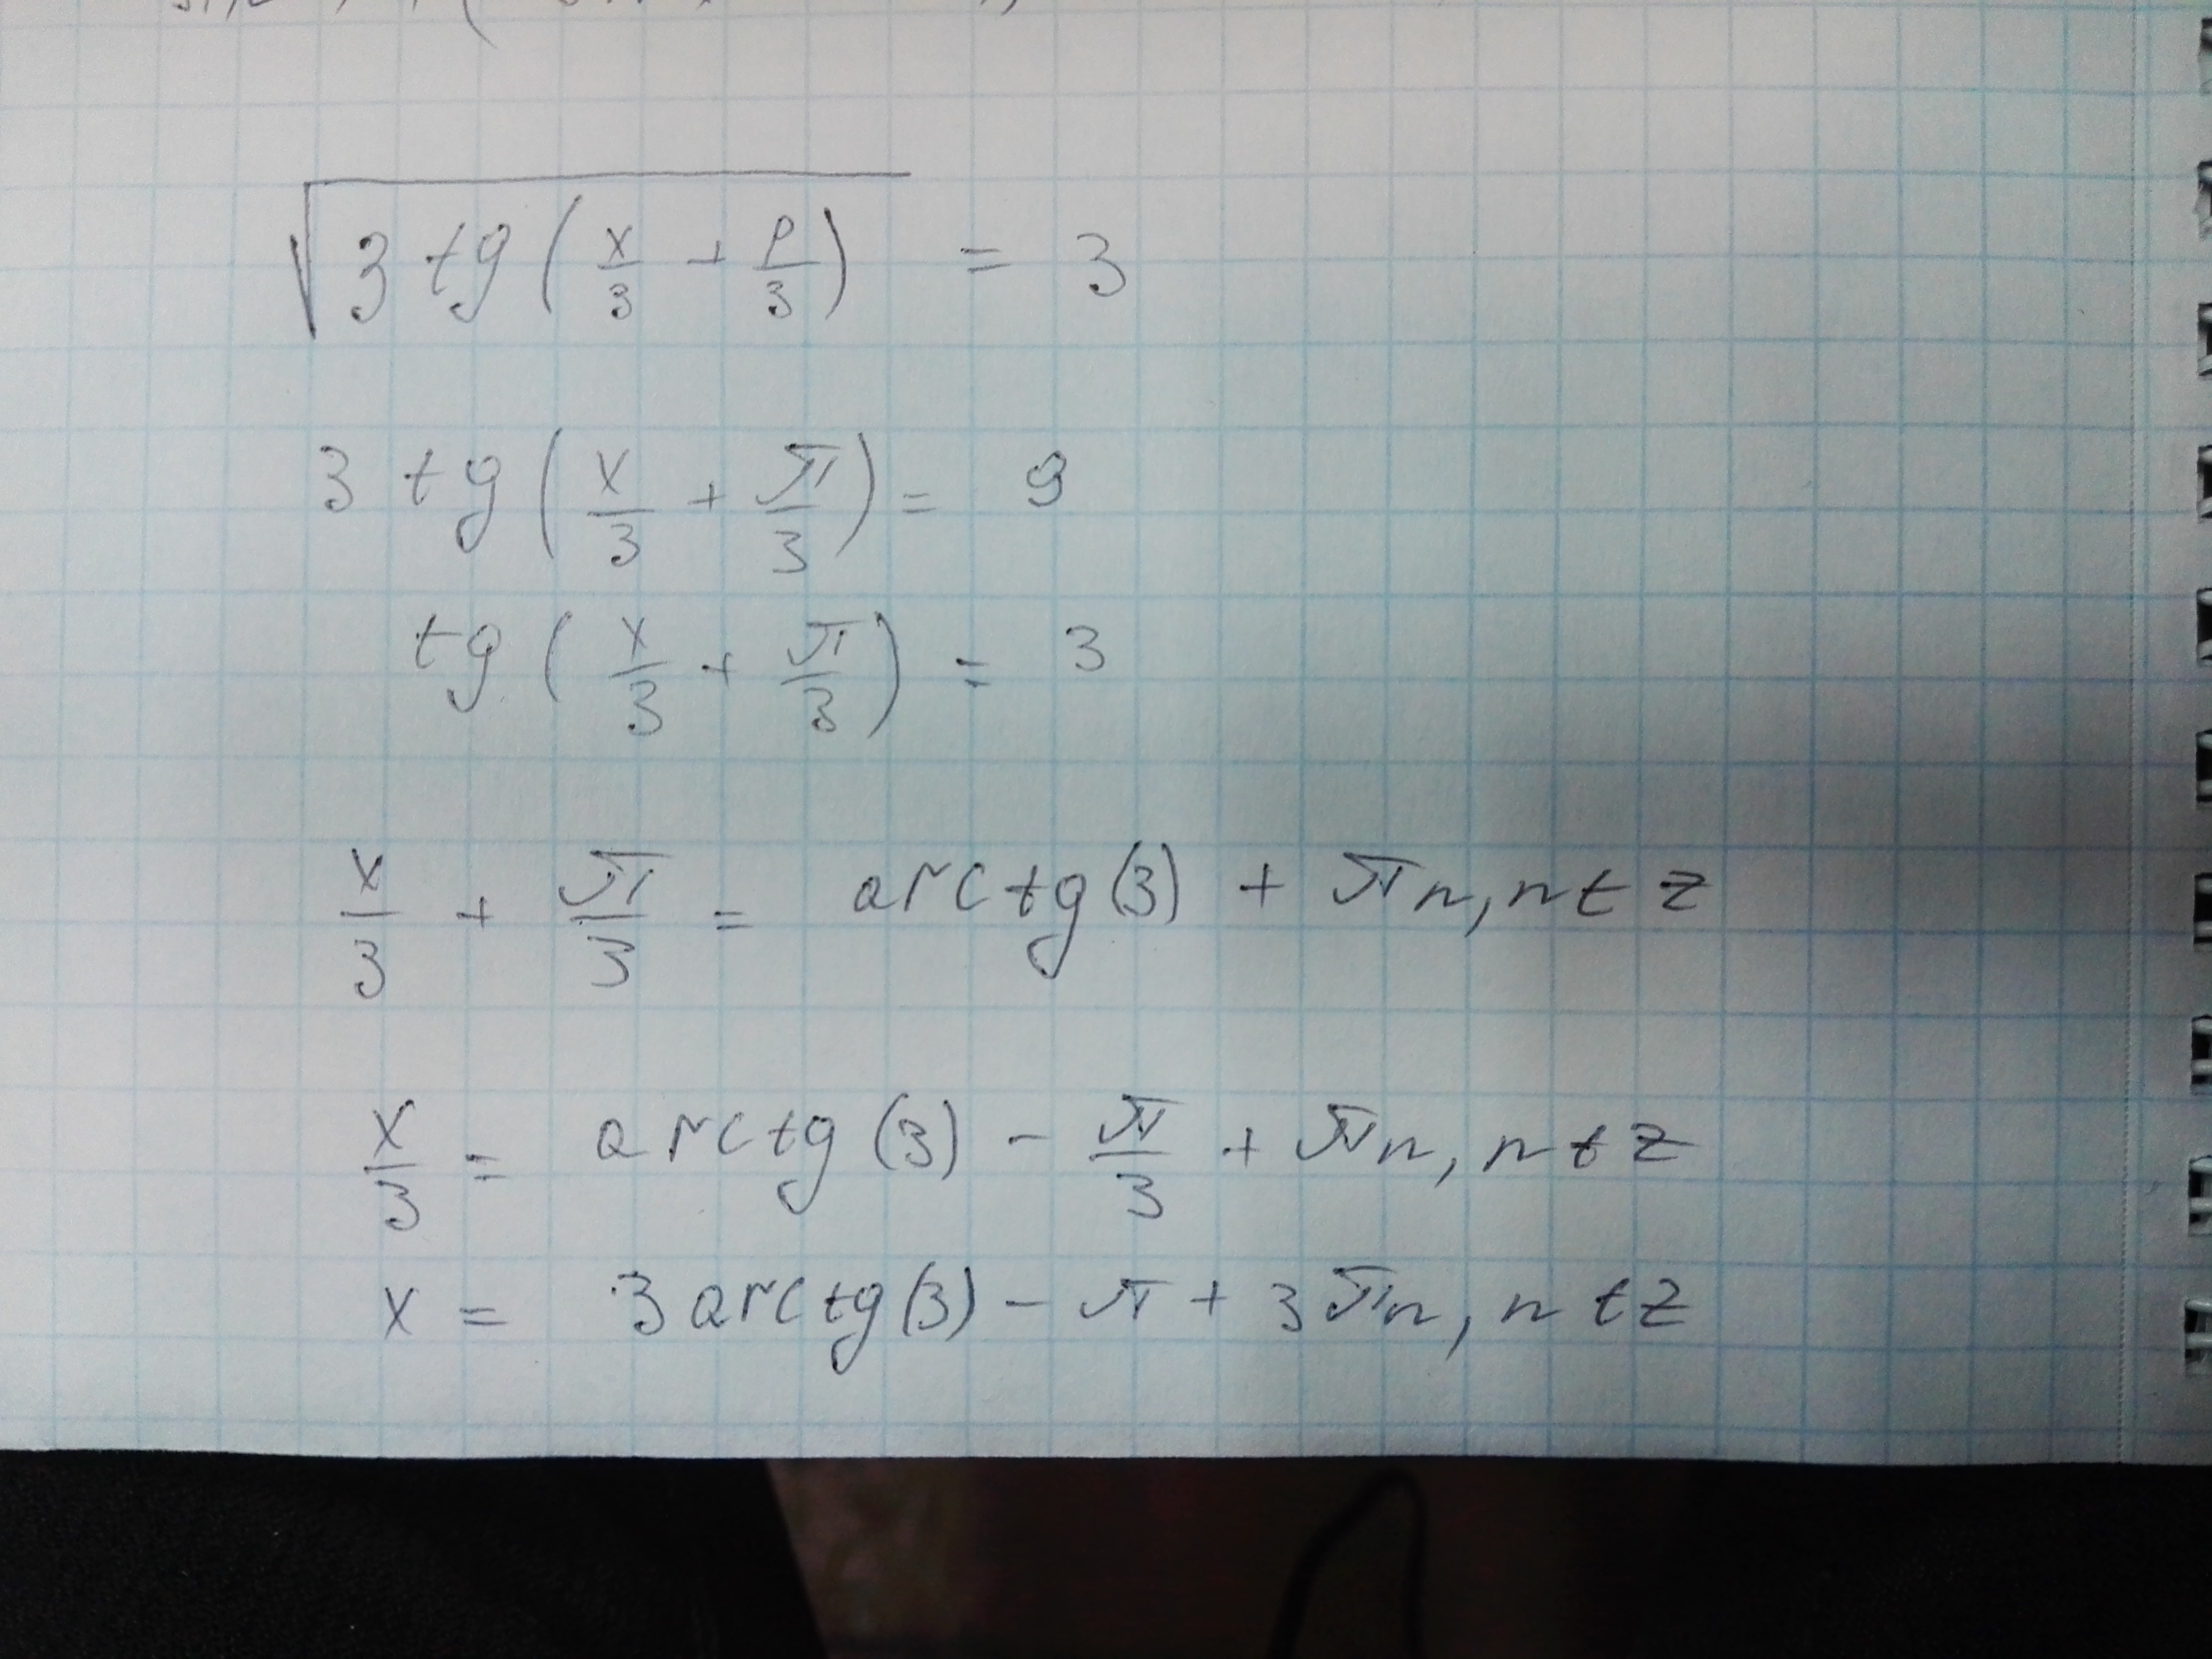 √3 tg (x/3 + p/3) = 3
3 tg (x/3 + π/3) = 9
tg (x/3 + π/3) = 3
x/3 + π/3 = arctg(3) + πn, n ∈ z
x/3 = arctg(3) - π/3 + πn, n ∈ z
x = 3arctg(3) - π + 3πn, n ∈ z